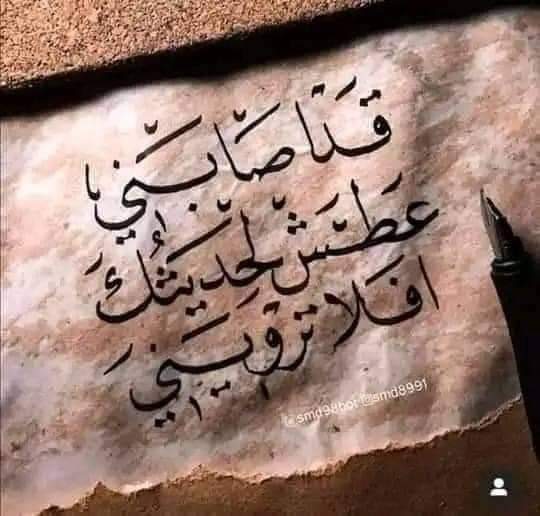 قد اصابني
عطش لحديثك
افلا ترويني
@smd98bot @smd8991